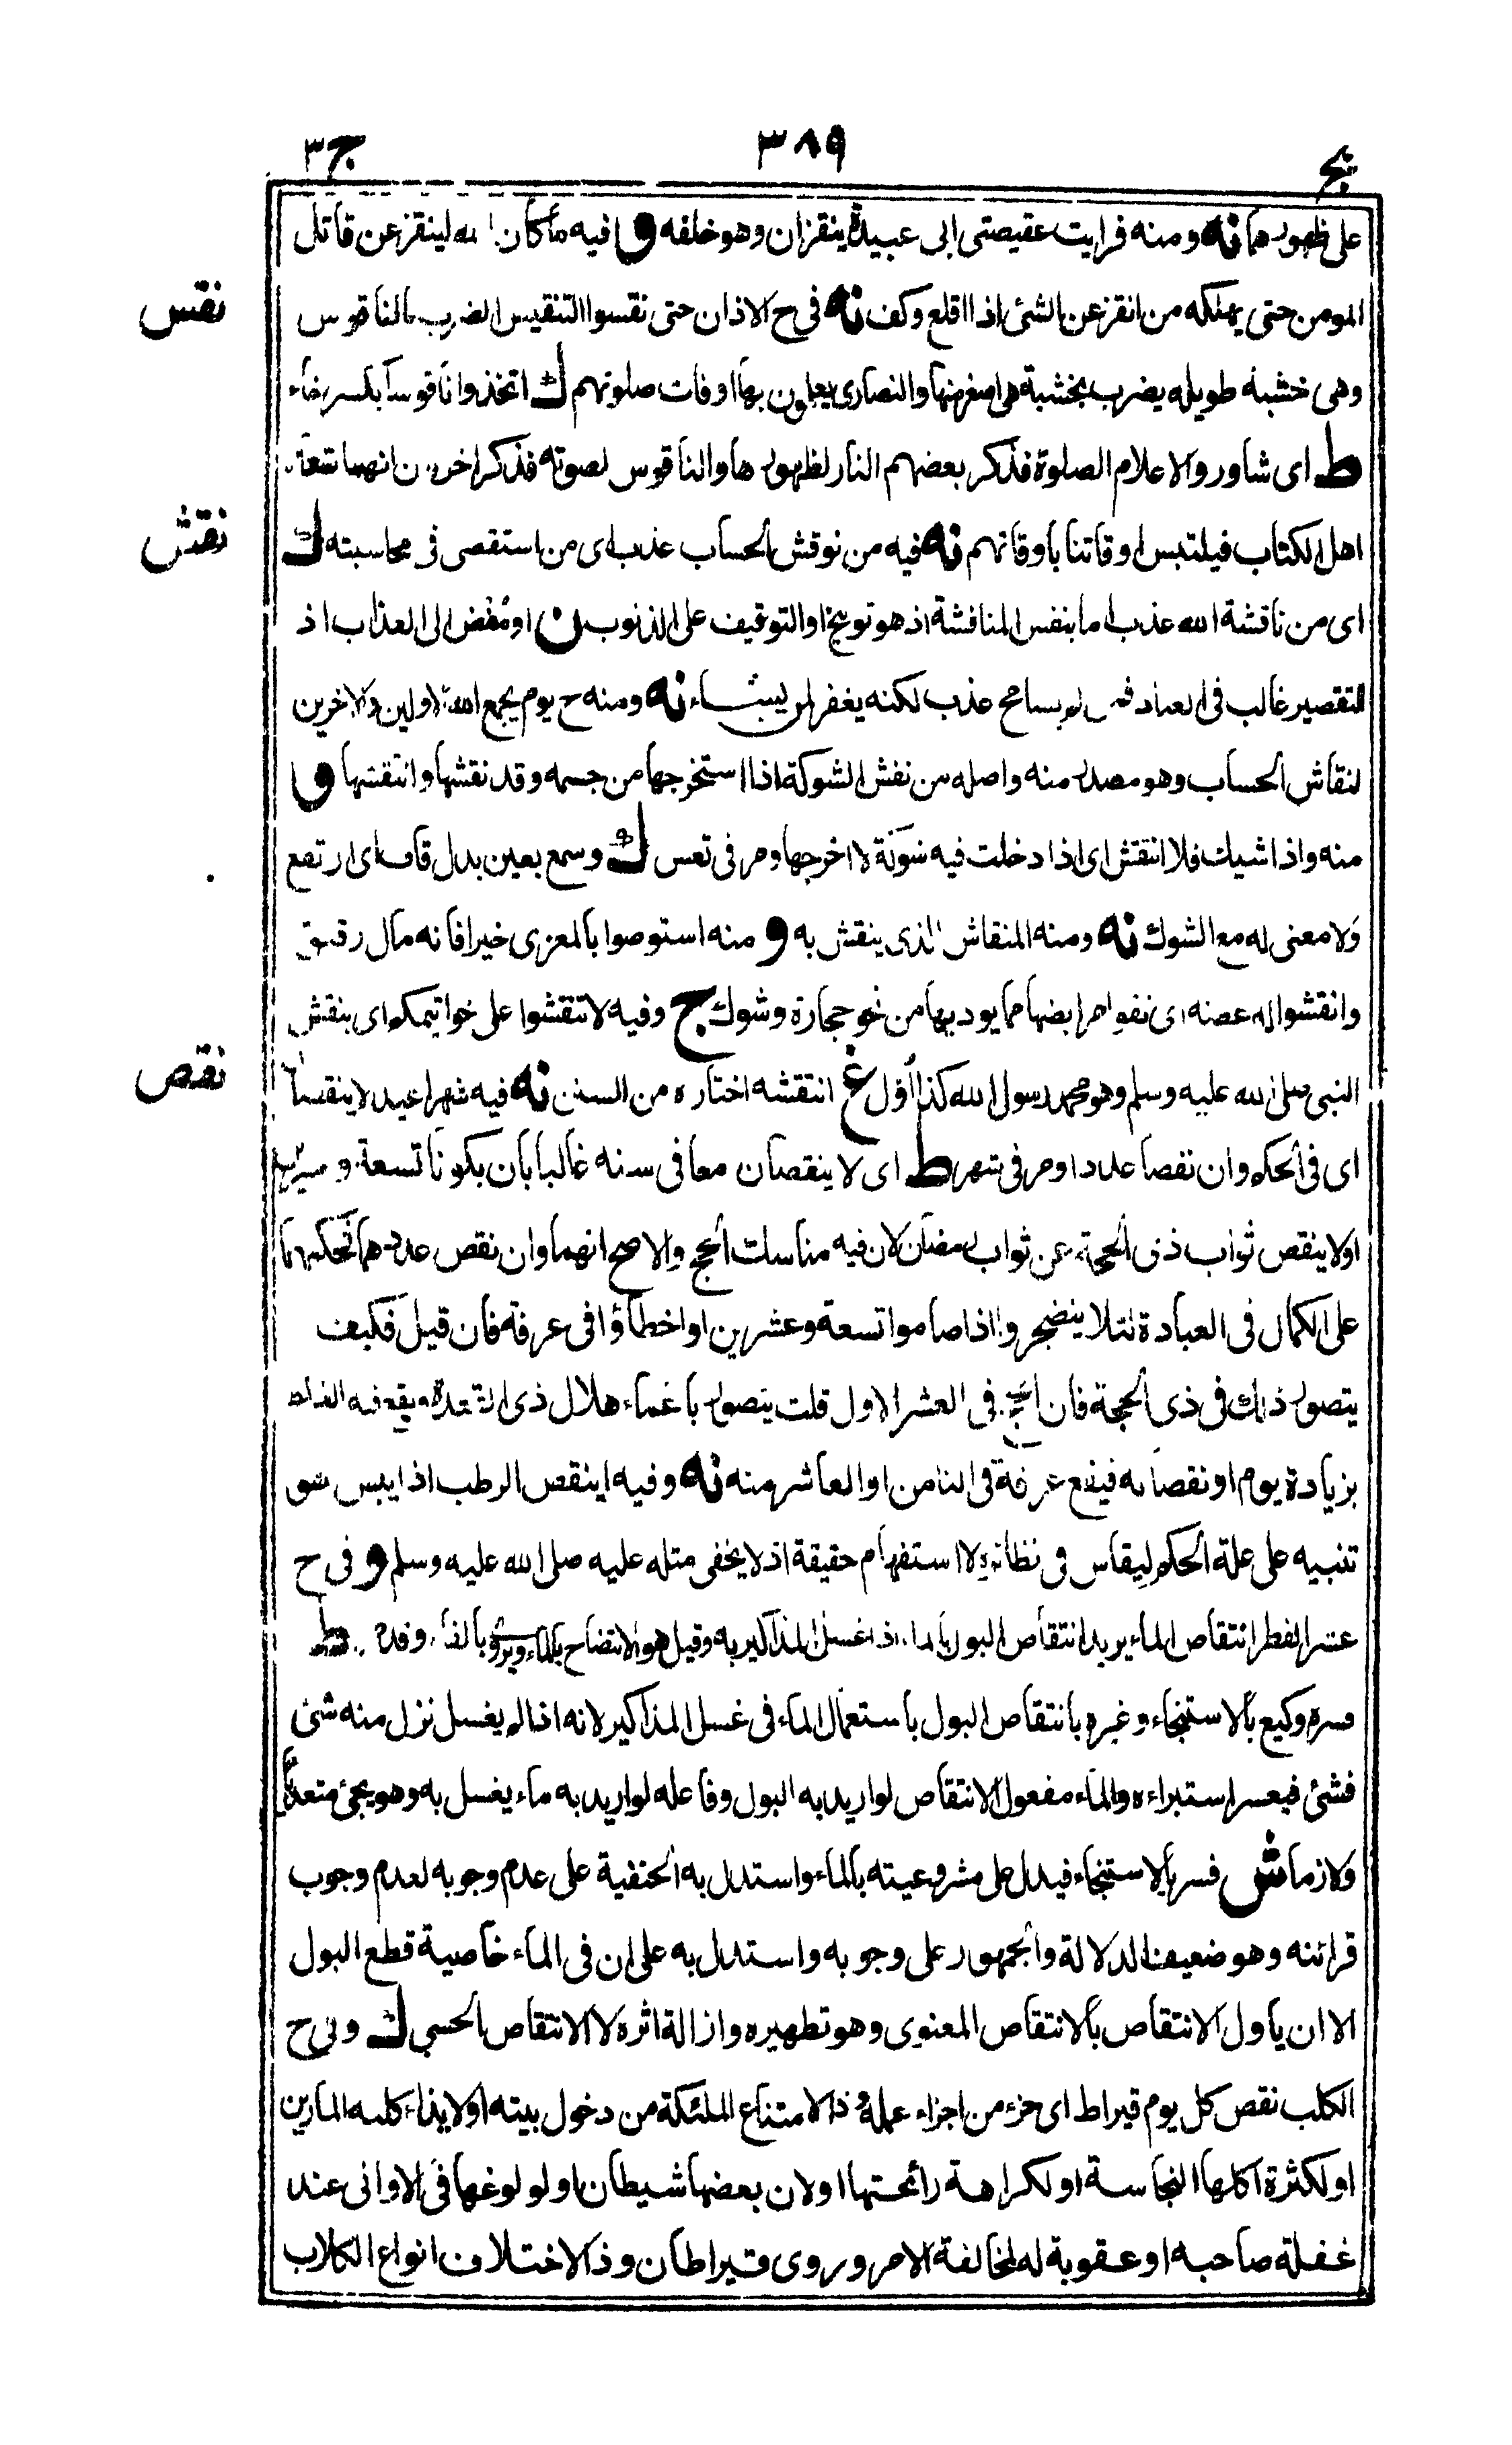 بح ٣٨٩ ج٣
على ظهورهما نه ومنه فرايت عقيصتي ابى عبيدة ينقزان وهو خلفه و فيه ما كان الله لينقز عن قاتل
المومن حتى يهلكه من انقز عن الشئ اذا اقلع وكف نه فى ح الاذان حتى نقسوا التنقيس الضرب بالناقوس
نقس
وهى خشبة طويلة يضرب بخشبة هى اصغر منها والنصارى يعلمون بها اوقات صلوتهم ك اتخذوا ناقوسا بكسر خاء
ط اى شاوروا لاعلام الصلوة فذكر بعضهم النار لظهورها والناقوس لصوته فذكر اخرون انهما شعار
اهل الكتاب فيلتبس اوقاتنا باوقاتهم نه فيه من نوقش الحساب عذب اى من استقصى فى محاسبته ك
نقش
اى من ناقشة الله عذب اما بنفس المناقشة اذ هو توبيخ او التوقيف على الذنوب ن او مفض الى العذاب اذ
التقصير غالب فى العباد فمن لم يسامح عذب لكنه يغفر لمن يشاء نه ومنه ح يوم يجمع الله الاولين والاخرين
لنقاش الحساب وهو مصدر منه واصله من نقش الشوكة اذا استخرجها من جسمه وقد نقشها وانتقشها و
منه واذا شيك فلا انتقش اى اذا دخلت فيه شوكة لا اخرجها ومر فى تعس ك وسمع بعين بدل قاف اى ارتفع
ولا معنى له مع الشوك نه ومنه المنقاش الذى ينقش به و منه استوصوا بالمعزى خيرا فانه مال رقيق
وانقشوا له عطنه اى نقوا مرابضها مما يوديها من نحو حجارة وشوك ج وفيه لا تنقشوا على خواتيمكم اى ينقش
النبى صلى الله عليه وسلم وهو محمد رسول الله كذا اول غ انتقشه اختاره من السنن نه فيه شهرا عيد لا ينقصان
نقص
اى فى الحكم وان نقصا عددا ومر فى شهر ط اى لا ينقصان معا فى سنه غالبا بان يكونا تسعة و عشرين
اولا ينقص ثواب ذى الحجة عن ثواب رمضان لان فيه مناسك الحج والاصح انهما وان نقص عددهما فحكمهما
على الكمال فى العبادة لئلا ينضجروا اذا صاموا تسعة وعشرين او اخطاؤا فى عرفة فان قيل فكيف
يتصور ذلك فى ذى الحجة فان الحج فى العشر الاول قلت يتصور باغماء هلال ذى القعدة ويقع فيه الغلط
بزيادة يوم او نقصانه فيقع عرفة فى الثامن او العاشر منه نه وفيه اينقص الرطب اذا يبس هو
تنبيه على علة الحكم ليقاس فى نظائره لا استفهام حقيقة اذ لا يخفى مثله عليه صلى الله عليه وسلم و فى ح
عشر الفطر انتقاص الماء يريد انتقاص البول بالماء اذا غسل المذاكير به وقيل هو الانتضاح بالماء ويروى بالفاء وقد مر ط
فسره وكيع بالاستنجاء وغيره بانتقاص البول باستعمال الماء فى غسل المذاكير لانه اذا لم يغسل نزل منه شئ
فشئ فيعسر استبراءه والماء مفعول الانتقاص لو اريد به البول وفاعله لو اريد به ماء يغسل به وهو يجئ متعديا
ولازما ش فسر بالاستنجاء فيدل على مشروعيته بالماء واستدل به الحنفية على عدم وجوبه لعدم وجوب
قرائنه وهو ضعيف الدلالة والجمهور على وجوبه واستدل به على ان فى الماء خاصية قطع البول
الا ان ياول الانتقاص بالانتقاص المعنوى وهو تطهيره وازالة اثره لا الانتقاص الحسي ك وفى ح
الكلب نقص كل يوم قيراط اى جزء من اجزاء عمله وذا لامتناع الملئكة من دخول بيته او لايذاء كلبه المارين
او لكثرة اكلها النجاسة او لكراهة رائحتها او لان بعضها شيطان او لولوغها فى الاوانى عند
غفلة صاحبه او عقوبة له لمخالفة الامر وروى قيراطان وذا لاختلاف انواع الكلاب